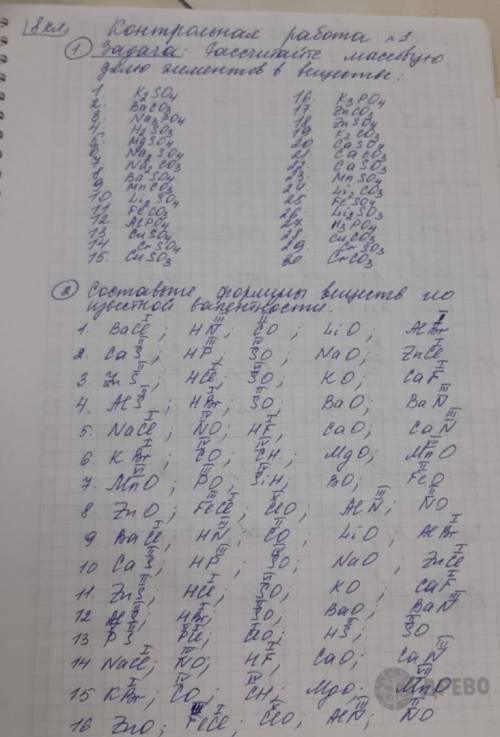 8 кл. Контрольная работа №1.
① Задача: Рассчитайте массовую
долю элементов в веществе:
1. K₂SO₄
2. BaCO₃
3. Na₃PO₄
4. H₂SO₃
5. MgSO₄
6. Na₂SO₄
7. Na₂CO₃
8. BaSO₄
9. MnCO₃
10. Li₂SO₄
11. FeCO₃
12. AlPO₄
13. CuSO₄
14. CrSO₄
15. CuSO₃
16. K₃PO₄
17. ZnCO₃
18. ZnSO₄
19. K₂CO₃
20. CaSO₃
21. CaCO₃
22. CaSO₃
23. MnSO₄
24. Li₂CO₃
25 FeSO₄
26. Li₂SO₃
27. H₃PO₄
28 CuCO₃
29. CrSO₃
30. CrCO₃
② Составьте формулы веществ по
известной валентности.
1. BaCl; HN; CO; LiO; AlBr
2. CaS; HP; SO; NaO; ZnCl
3. ZnS; HCl; SO; KO; CaF
4. AlS; HBr; SO; BaO; BaN
5. NaCl; NO; HF; CaO; CaN
6 KBr; CO; CH; MgO; MnO
7. MnO; PO; SiH; BO; FeO
8 ZnO; FeCl; ClO; AlN; NO
9 BaCl; HN; CO; LiO; AlBr
10 CaS; HP; SO; NaO; ZnCl
11. ZnS; HCl; SO; KO; CaF
12 AlS; HBr; SO; BaO; BaN
13 PS; PCl; ClO; HS; SO
14 NaCl; NO; HF; CaO; CaN
15 KBr; CO; CH; MgO; MnO
16 ZnO; FeCl; ClO; AlN; NO
ДРЕВО